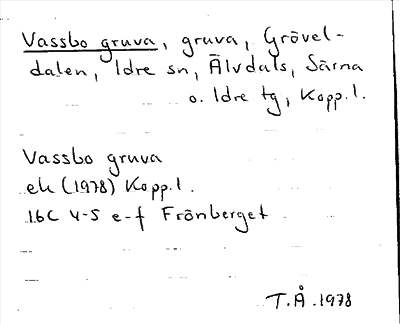 Vassbo gruva, gruva, Grövel-
dalen, Idre sn, Älvdals, Särna
o. Idre tg, Kopp.l.
Vassbo gruva
ek (1978) Kopp.l.
16C 4-5 e-f Frönberget
T.Å. 1978